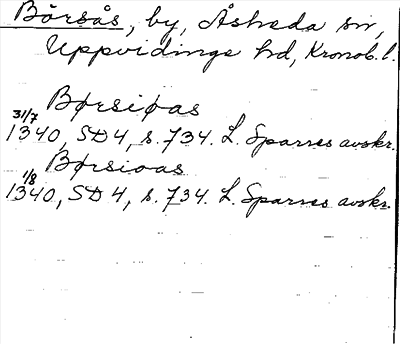 Börsås, by, Åsheda sn,
Uppvidinge hd, Kronob. l.
Børsiøas
31/7
1340, SD 4, s. 734. L. Sparres avskr.
Børsioas
1/8
1340, SD 4, s. 734. L. Sparres avskr.